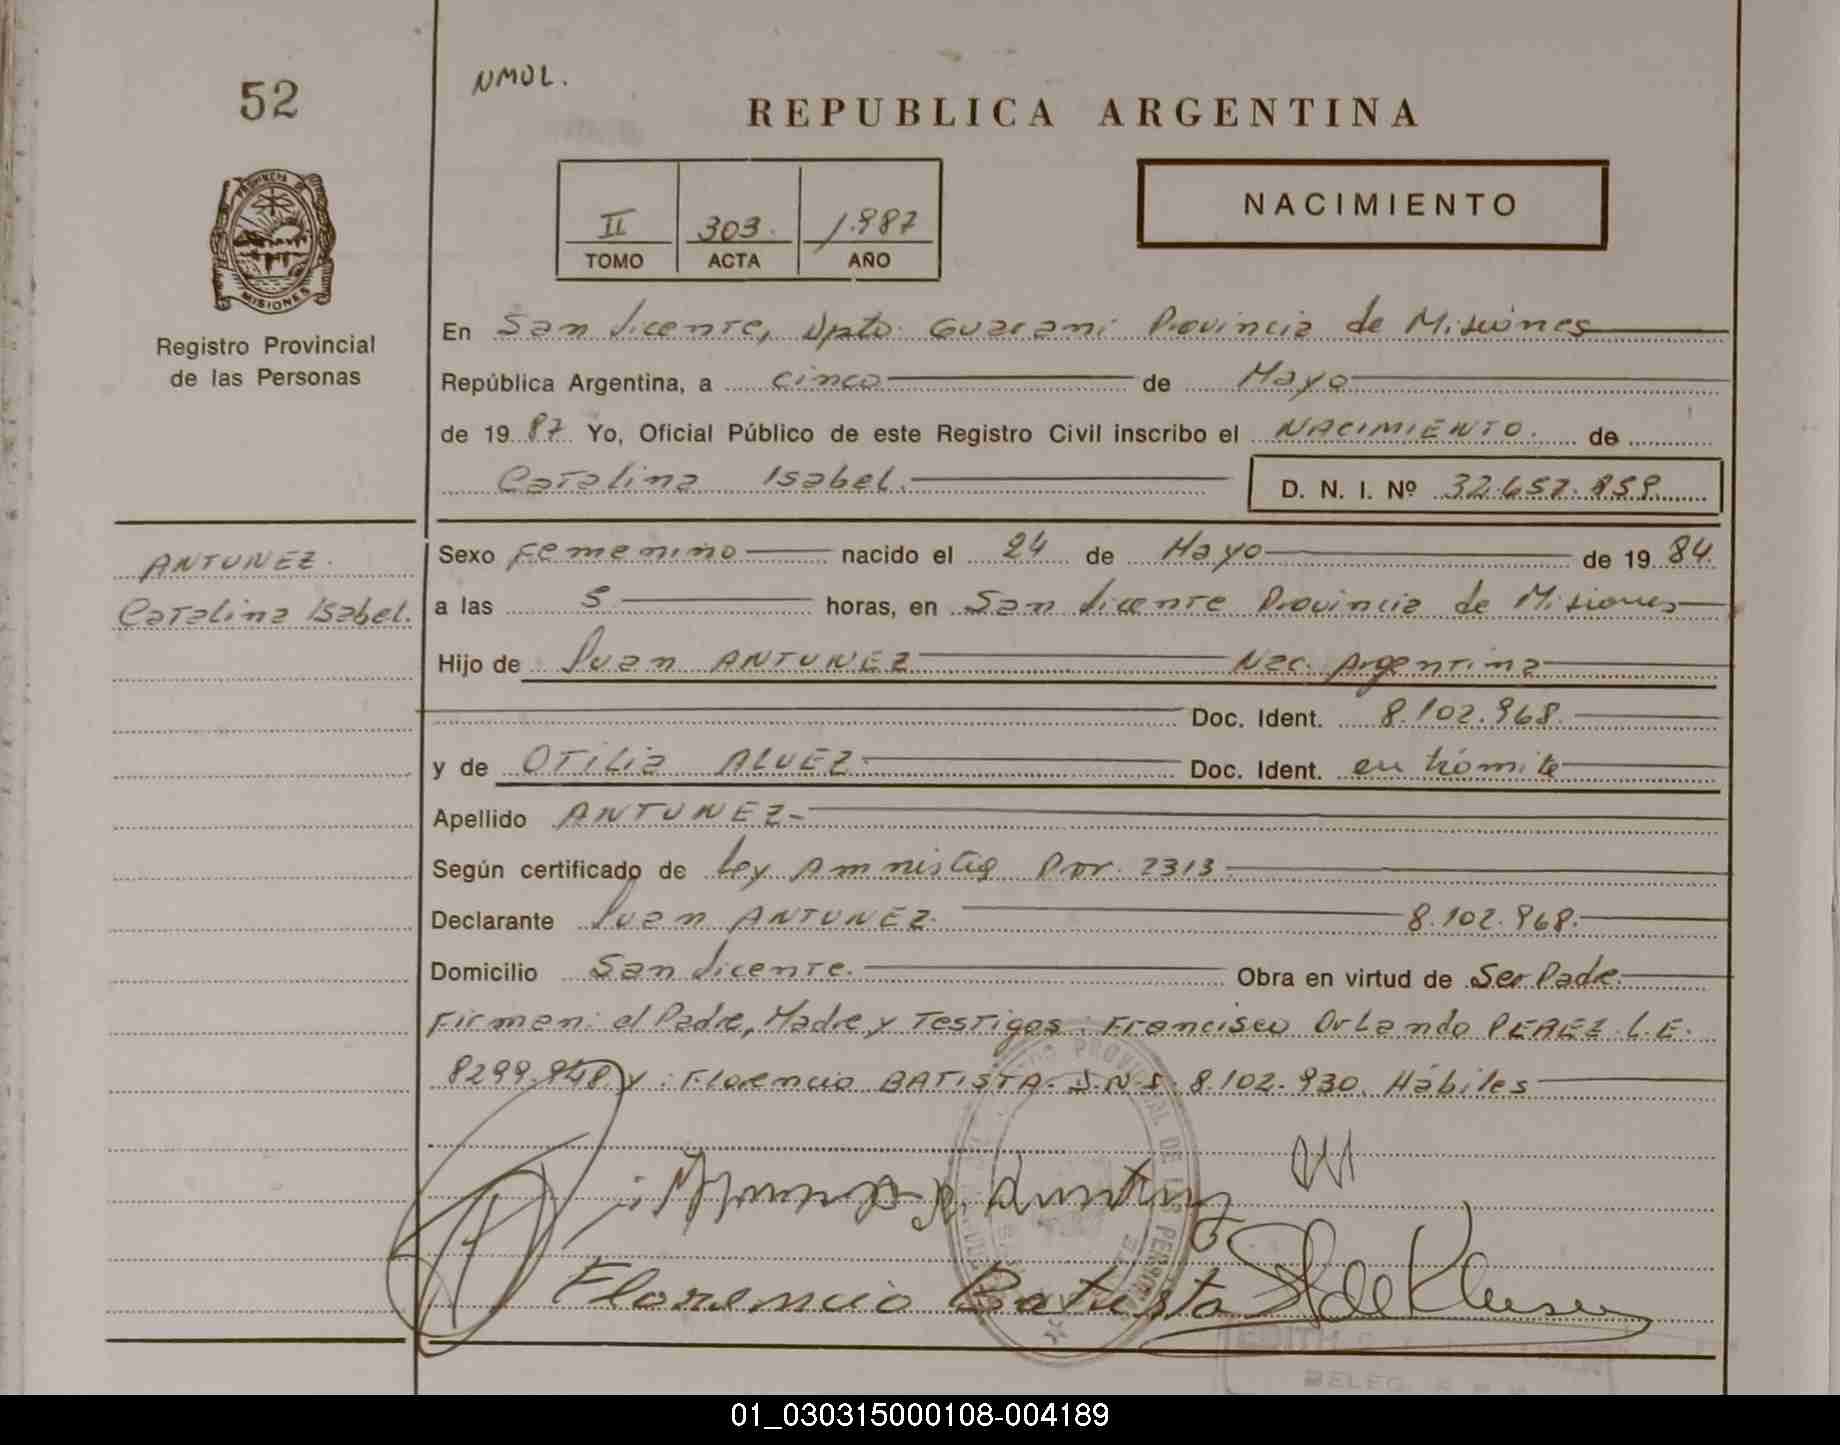 52
NMOL.
REPUBLICA ARGENTINA
PROVINCIA DE
MISIONES
Registro Provincial
de las Personas
II 303. 1.987
TOMO ACTA AÑO
NACIMIENTO
En San Vicente, Dpto. Guarani Provincia de Misiones
República Argentina, a cinco de Mayo
de 19 87 Yo, Oficial Público de este Registro Civil inscribo el NACIMIENTO. de
Catalina Isabel.
D. N. I. Nº 32.657.859
ANTUNEZ.
Catalina Isabel.
Sexo Femenino nacido el 24 de Mayo de 19 84.
a las 5 horas, en San Vicente Provincia de Misiones
Hijo de Juan ANTUNEZ Nac. Argentina
Doc. Ident. 8.102.968.
y de OTilia ALVEZ Doc. Ident. en trámite
Apellido ANTUNEZ-
Según certificado de Ley Amnistia Pror. 2313
Declarante Juan ANTUNEZ. 8.102.968.
Domicilio San Vicente. Obra en virtud de Ser Padre.
Firman: el Padre, Madre y Testigos: Francisco Orlando PEREZ L.E.
8299.848 y: Florencio BATISTA. D.N.I. 8.102.930. Hábiles
PROVINCIAL DE LAS PERSONAS
Florencio Batista
EDITH
BELEG.
01_030315000108-004189